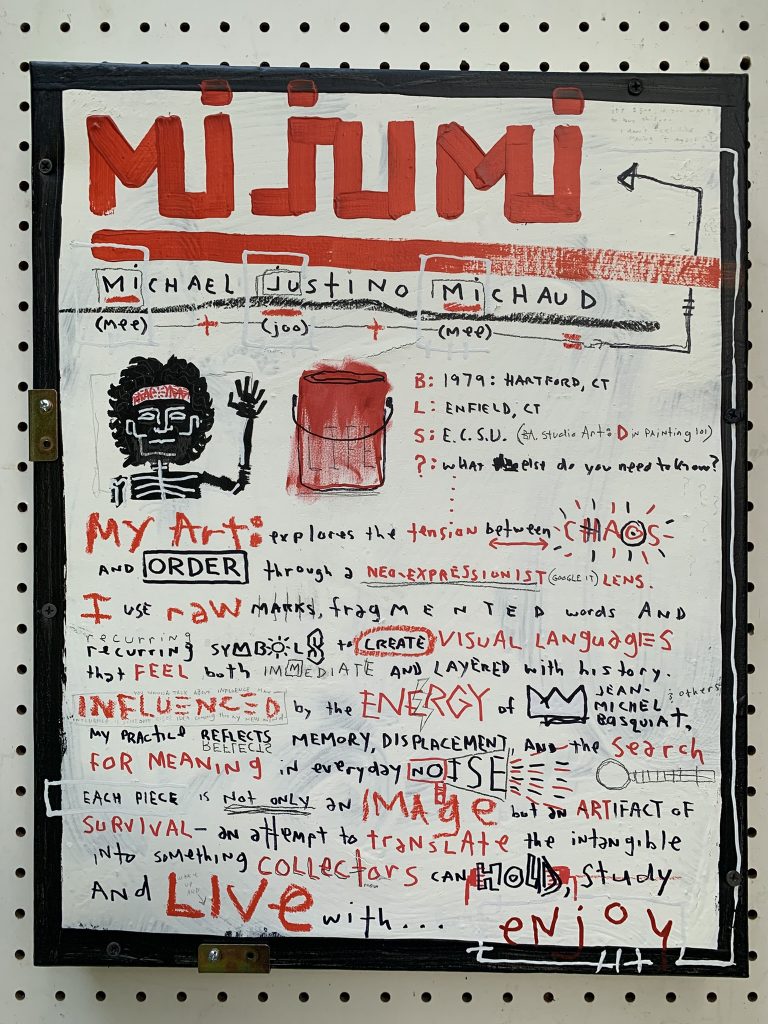 MiJUMi
MiCHAEL JUSTINO MiCHAUD
(mee) + (joo) + (mee) =
B: 1979: HARTFORD, CT
L: ENFIELD, CT
S: E.C.S.U. (BA. Studio Art: D in PAiNting 101)
?: what else do you need to know?
MY Art: explores the tension between CHAOS
AND ORDER through a NEO-EXPRESSIONIST (GOOGLE IT) LENS.
I USE raw MARKS, fragMENTED words AND
recurring
recurring SYMBOLS to CREATE VISUAL LANGUAGES
that FEEL both IMMEDIATE AND LAYERED with history.
INFLUENCED by the ENERGY of JEAN-MICHEL BASQUIAT, & others
MY PRACTICE REFLECTS MEMORY, DISPLACEMENT, AND the Search
REFLECTS
FOR MEANING in everyday NOISE
EACH PIECE is Not only an IMAge but an ARTIFACT OF
SURVIVAL - an attempt to translate the intangible
into something COLLECTORS CAN HOLD, study
AND LIVE with... enjoy